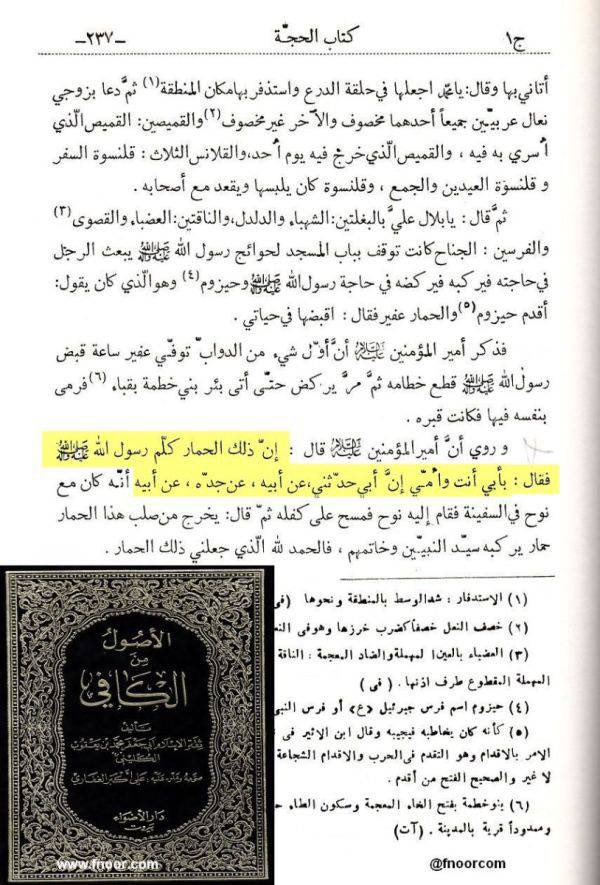 ج١ كتاب الحجّة -٢٣٧-
أتاني بها وقال: يا محمّد اجعلها في حلقة الدرع واستذفر بها مكان المنطقة (١) ثمَّ دعا بزوجي
نعال عربيّين جميعاً أحدهما مخصوف والآخر غير مخصوف (٢) والقميصين: القميص الّذي
أُسري به فيه ، والقميص الّذي خرج فيه يوم أُحد، والقلانس الثلاث : قلنسوة السفر
و قلنسوة العيدين والجمع ، وقلنسوة كان يلبسها ويقعد مع أصحابه .
ثمَّ قال : يا بلال عليَّ بالبغلتين: الشهباء والدلدل، والناقتين: العضباء والقصوى (٣)
والفرسين : الجناح كانت توقف بباب المسجد لحوائج رسول الله صلى الله عليه وآله يبعث الرجل
في حاجته فيركبه فيركضه في حاجة رسول الله صلى الله عليه وآله وحيزوم (٤) وهو الّذي كان يقول:
أقدم حيزوم (٥) والحمار عفير فقال : اقبضها في حياتي .
فذكر أمير المؤمنين عليه السلام أنَّ أوّل شيء من الدوابّ توفّي عفير ساعة قبض
رسول الله صلى الله عليه وآله قطع خطامه ثمَّ مرَّ يركض حتّى أتى بئر بني خطمة بقباء (٦) فرمى
بنفسه فيها فكانت قبره .
و روي أنَّ أمير المؤمنين عليه السلام قال : إنّ ذلك الحمار كلّم رسول الله صلى الله عليه وآله
فقال : بأبي أنت وأُمّي إنَّ أبي حدّثني، عن أبيه ، عن جدّه ، عن أبيه أنّه كان مع
نوح في السفينة فقام إليه نوح فمسح على كفله ثمّ قال: يخرج من صلب هذا الحمار
حمار يركبه سيّد النبيّين وخاتمهم ، فالحمد لله الّذي جعلني ذلك الحمار .
(١) الاستدفار : شد الوسط بالمنطقة ونحوها (فى
(٢) خصف النعل خصفاً كضرب خرزها وهو فى النعـ
(٣) العضباء بالعين المهملة والضاد المعجمة : الناقة
المهملة المقطوع طرف اذنها . ( فى )
(٤) حيزوم اسم فرس جبرئيل «ع» أو فرس النبى
(٥) كأنه كان يخاطبه فيجيبه وقال ابن الاثير فى
الامر بالاقدام وهو التقدم فى الحرب والاقدام الشجاعة
لا غير والصحيح الفتح من أقدم .
(٦) بنو خطمة بفتح الخاء المعجمة وسكون الطاء
وممدوداً قرية بالمدينة . (آت)
الأصول
من
الكافي
تأليف
دار الأضواء
بيروت
www.fnoor.com
@fnoorcom